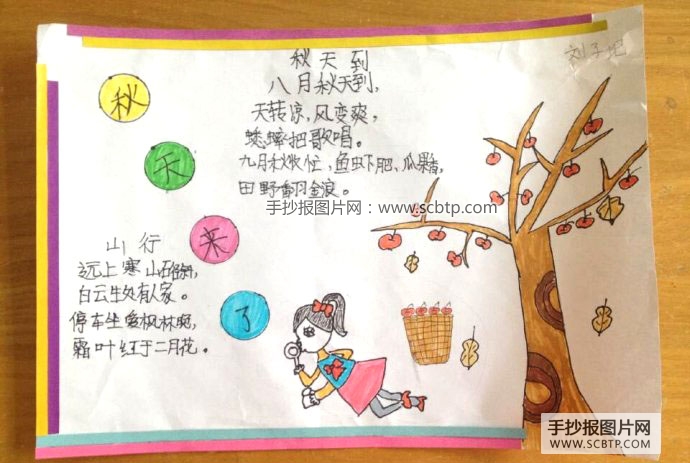 刘子
秋天到
八月秋天到,
天转凉,风变爽,
蟋蟀把歌唱。
九月秋收忙、鱼虾肥、瓜果香,
田野翻金浪。
手抄报图片网:www.scbtp.com
秋
天
来
了
山行
远上寒山石径斜,
白云生处有人家。
停车坐爱枫林晚,
霜叶红于二月花。
手抄报图片网
WWW.SCBTP.COM